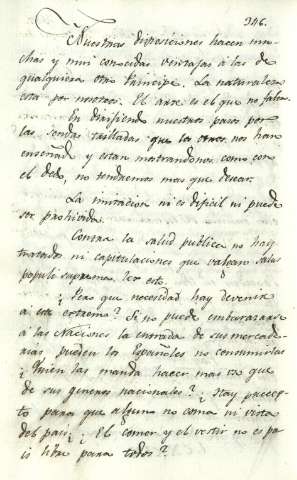 246.
Nuestras disposiciones hacen mu-
chas y mui conocidas ventajas á las de
qualquiera otro Principe. La naturaleza
esta por nosotros. El arte es el que no falta.
En dirigiendo nuestros pasos por
las sendas trilladas que los otros nos han
enseñado y estan mostrandonos como con
el dedo, no tendremos mas que desear.
La imitacion ni es dificil ni puede
ser prohivida.
Contra la salud publica no hay
tratados ni capitulaciones que valgan salus
populi suprema lex est.
¿Pero que necesidad hay de venir
á este extremo? Si no puede embarazarse
á las Naciones la entrada de sus mercade-
rias pueden los Españoles no consumirlas
¿Quien les manda hacer mas uso que
de sus generos nacionales? ¿Hay precep-
to para que alguno no coma ni vista
del pais? ¿El comer y el vestir no es pa
is libre para todos?